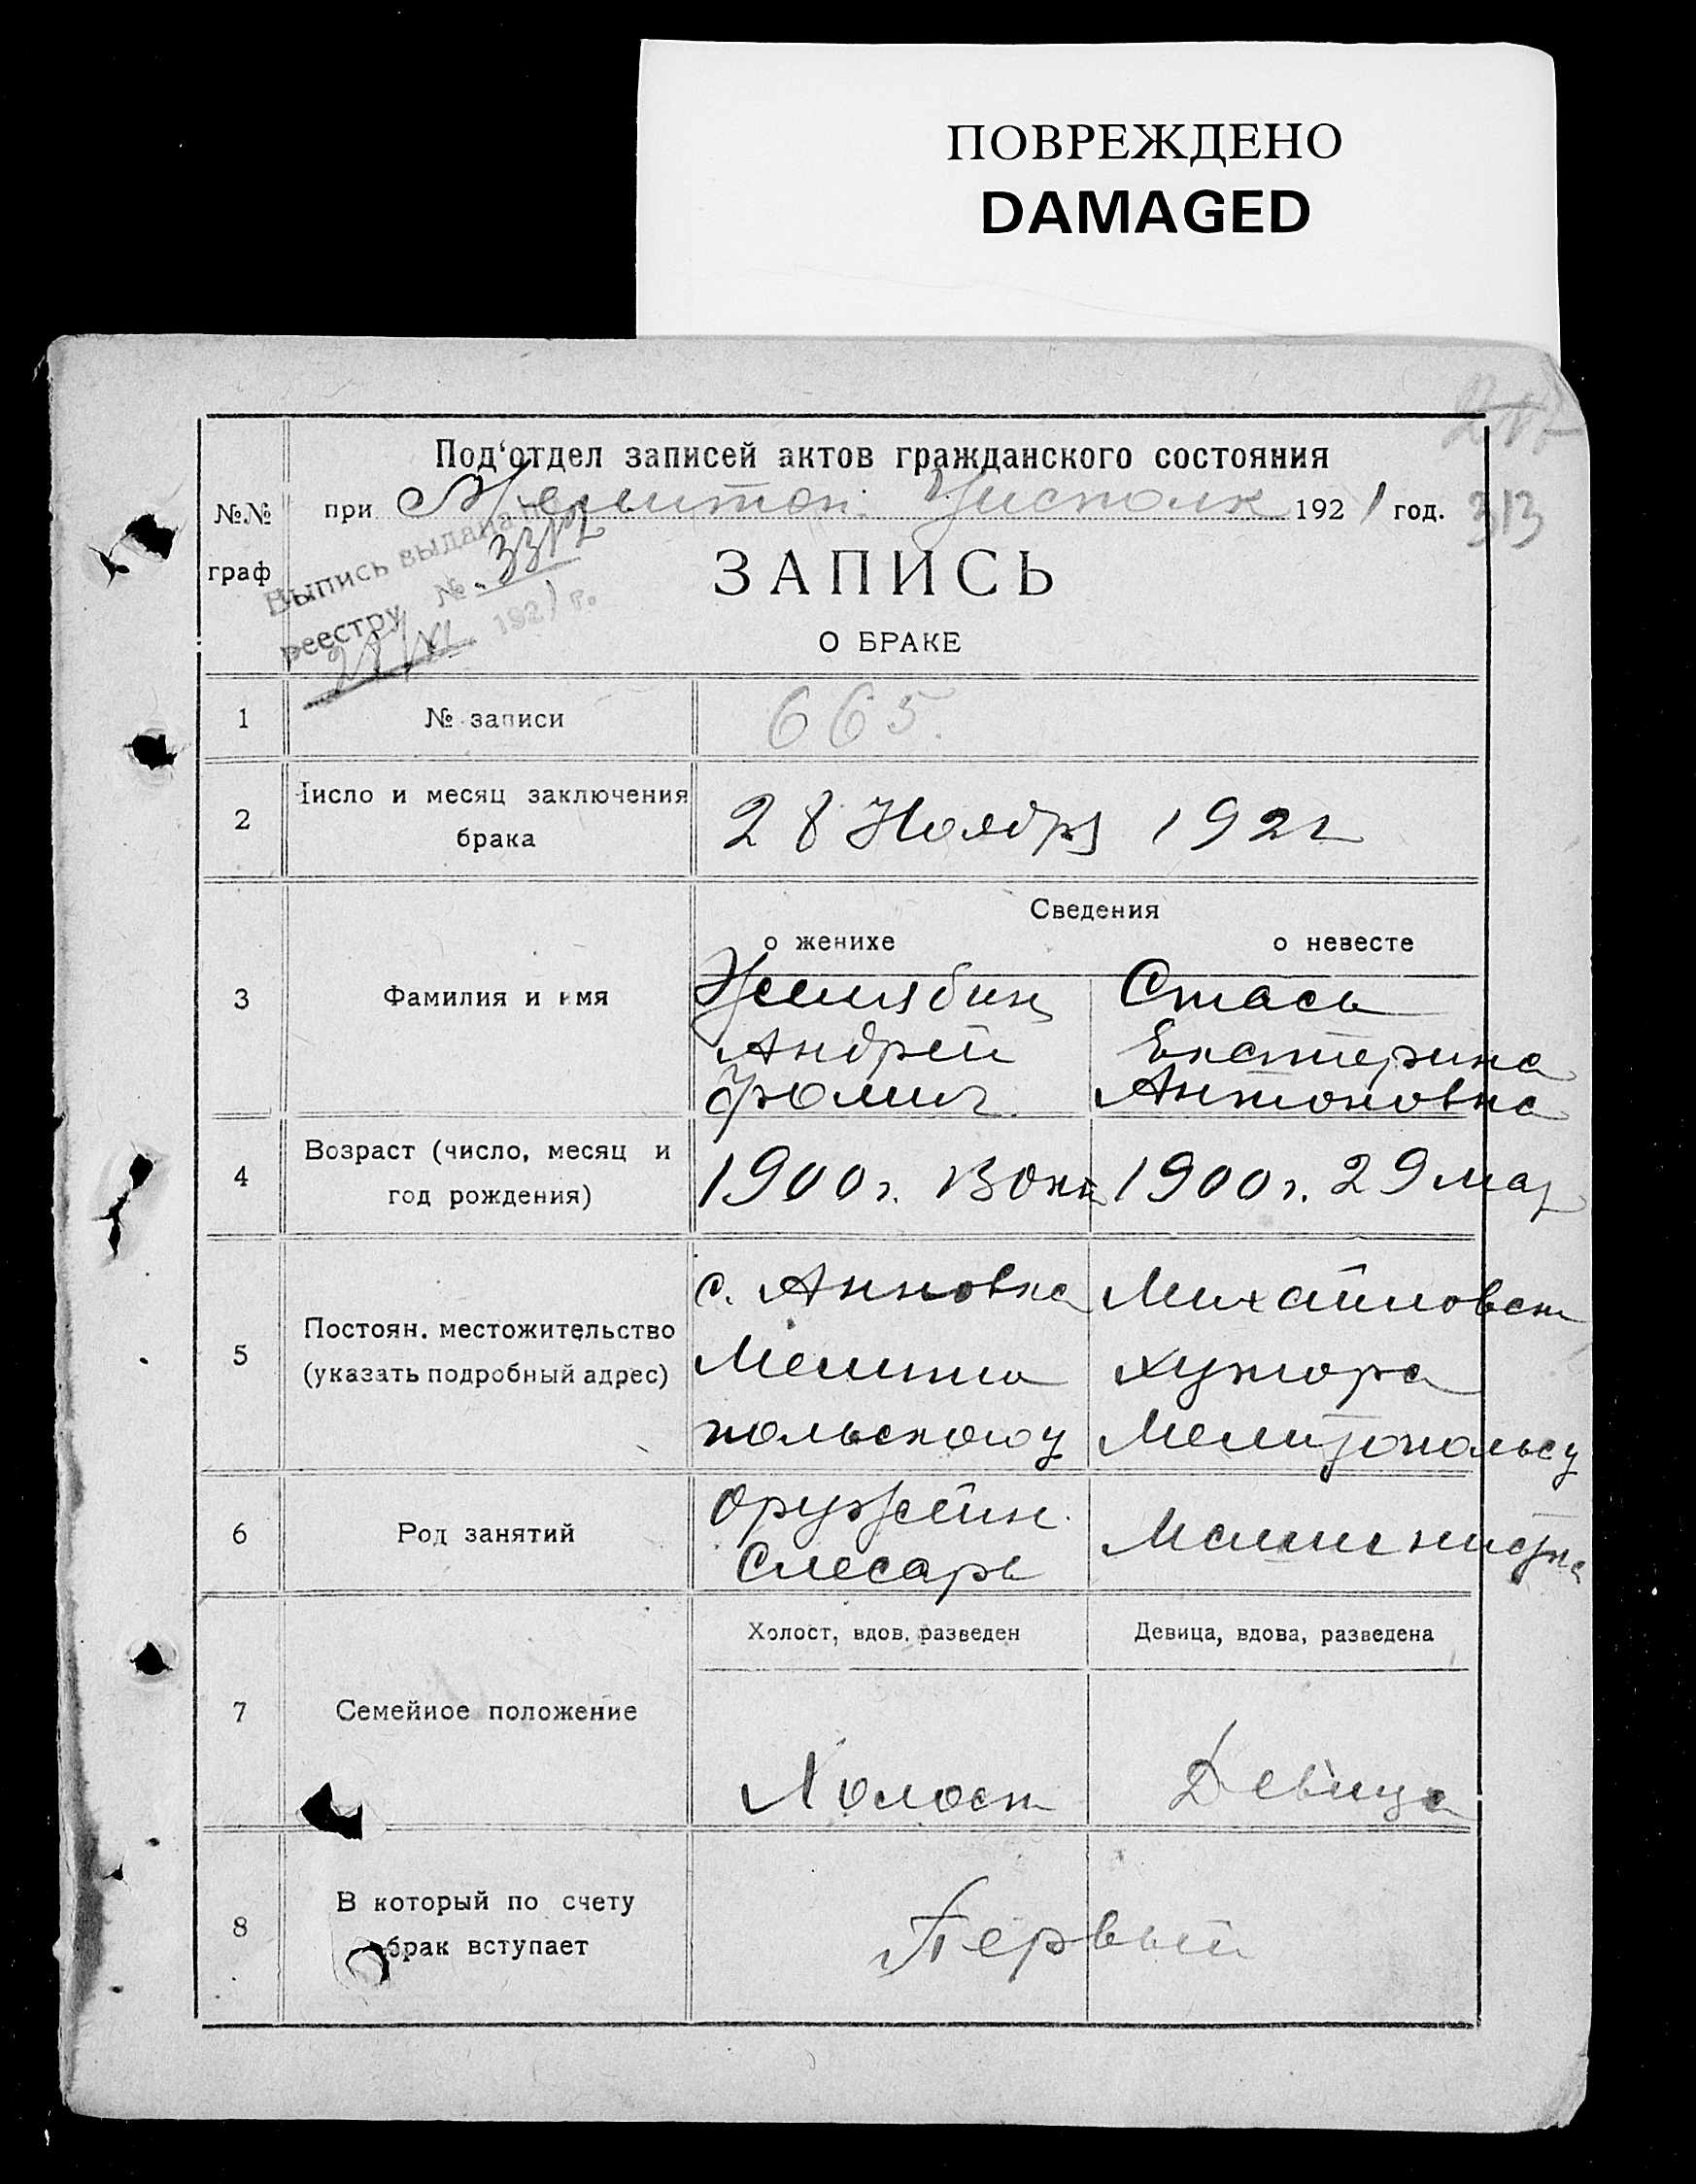 ПОВРЕЖДЕНО
DAMAGED
313
Под'отдел записей актов гражданского состояния
№№ граф
при Мелитоп. Уисполк 1921 год.
Выпись выдана по
реестру № 3312
28/XI 1921 г.
ЗАПИСЬ
О БРАКЕ
1 № записи 665.
2 Число и месяц заключения
брака
28 Ноября 1921
Сведения
о женихе о невесте
3 Фамилия и имя
Стась
Андрей Екатерина
Фомич Антоновна
4 Возраст (число, месяц и
год рождения)
1900 г. 1900 г. 29 мая
5 Постоян. местожительство
(указать подробный адрес)
с. Анновка Михайловск
Мелито хутора
польского у Мелитопольс у
6 Род занятий
Оружейн.
Слесарь
Машинистка
7 Семейное положение
Холост, вдов, разведен Девица, вдова, разведена
Холост Девица
8 В который по счету
брак вступает
Первый